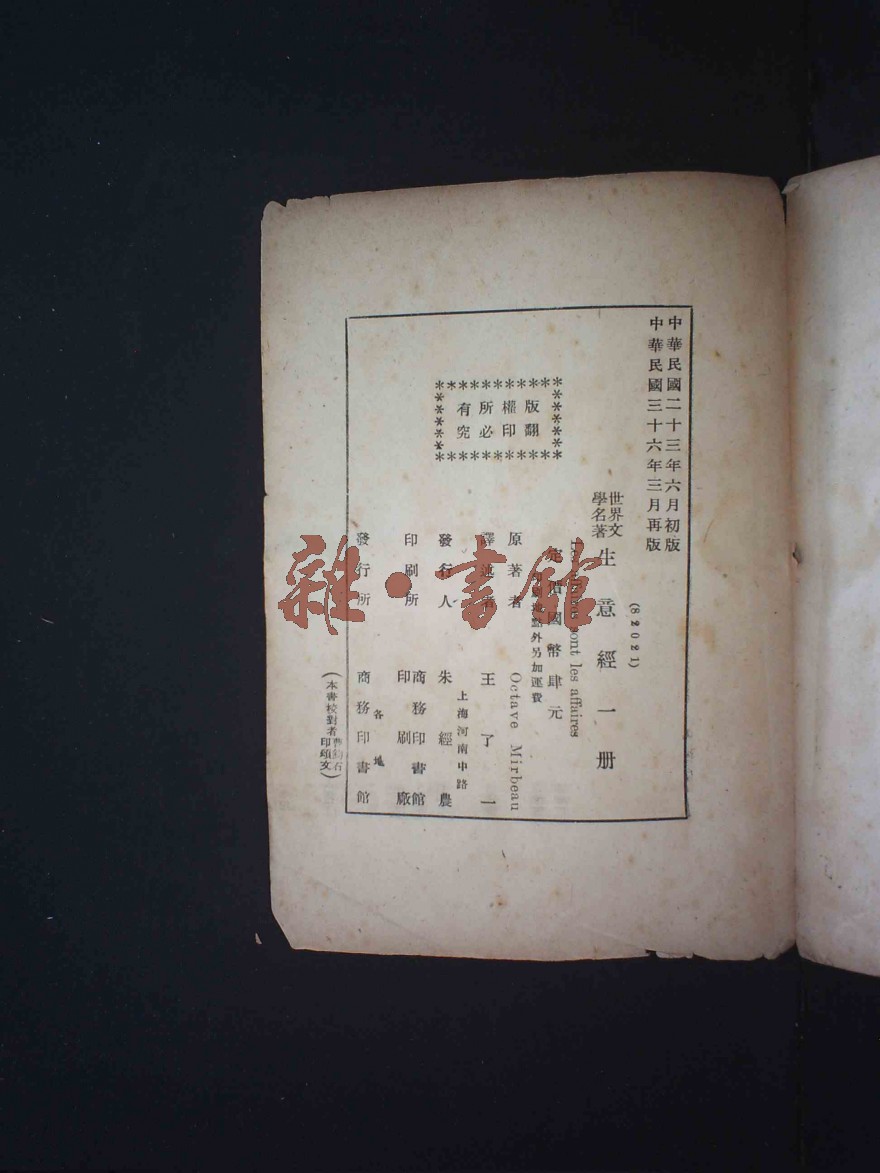 中華民國二十三年六月初版
中華民國三十六年三月再版
(82021)
世界文學名著 生意經一册
Les affaires sont les affaires
定價國幣肆元
印刷地點外另加運費
版權所有
翻印必究
原著者 Octave Mirbeau
譯述者 王了一
發行人 朱經農
上海河南中路
印刷所 商務印書館印刷廠
發行所 商務印書館
各地
(本書校對者
印頌文)
雜·書館